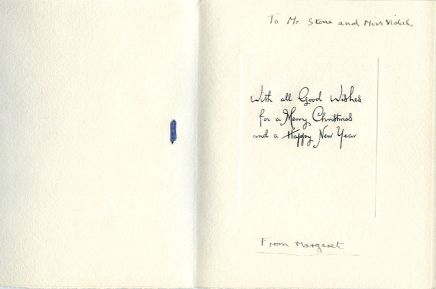 To Mr. Stone and Miss Vidal.
With all Good Wishes
for a Merry Christmas
and a Happy New Year
From Margaret